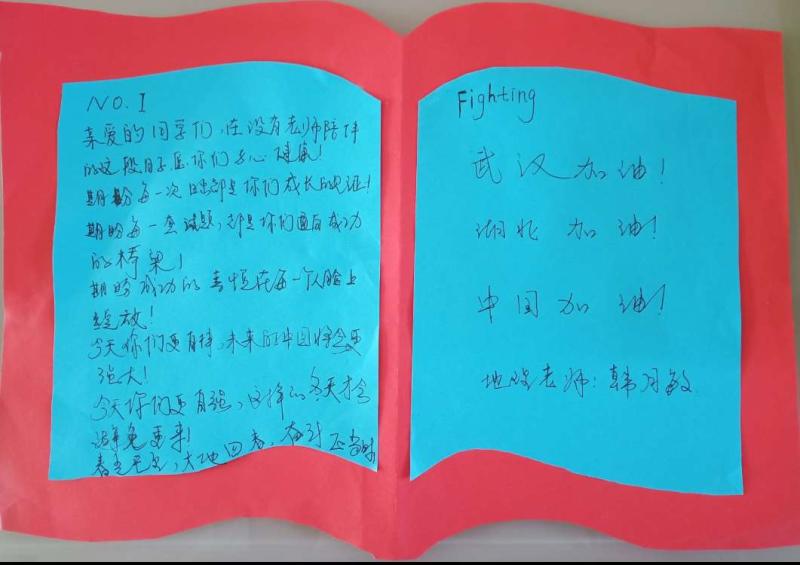 NO.1
亲爱的同学们,在没有老师陪伴
的这段日子愿你们安心健康!
期盼每一次 都是你们成长的见证!
期盼每一套试题,都是你们通向成功
的桥梁!
期盼成功的喜悦在每一个人脸上
绽放!
今天你们更自律,未来的中国将会更
强大!
今天你们更自强,这样的冬天才会
避免更来!
春 ,大地回春,奋斗正当时
Fighting
武汉加油!
湖北 加油!
中国加油!
地理老师:韩月敏